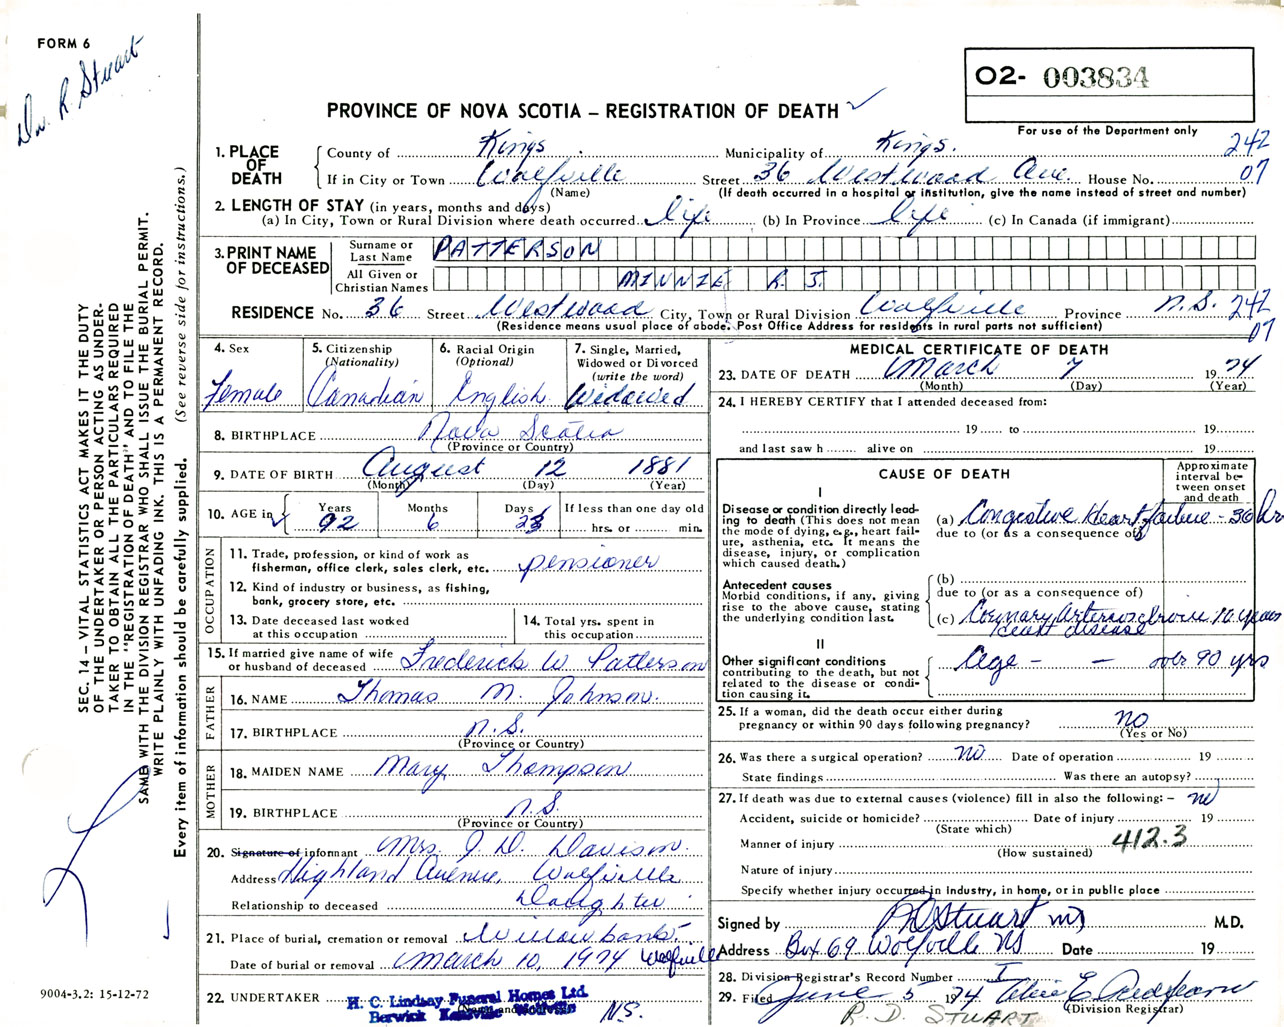 FORM 6
Dr. R. Stuart
O2- 003834
For use of the Department only
PROVINCE OF NOVA SCOTIA – REGISTRATION OF DEATH
242
07
1. PLACE OF DEATH
County of Kings. Municipality of Kings.
If in City or Town Wolfville (Name) Street 36 Westwood Ave House No.
(If death occurred in a hospital or institution, give the name instead of street and number)
2. LENGTH OF STAY (in years, months and days)
(a) In City, Town or Rural Division where death occurred life (b) In Province life (c) In Canada (if immigrant)
3. PRINT NAME OF DECEASED
Surname or Last Name PATTERSON
All Given or Christian Names MINNIE R. J.
RESIDENCE No. 36 Street Westwood City, Town or Rural Division Wolfville Province N.S. 242
07
(Residence means usual place of abode. Post Office Address for residents in rural parts not sufficient)
4. Sex
Female
5. Citizenship (Nationality)
Canadian
6. Racial Origin (Optional)
English
7. Single, Married, Widowed or Divorced (write the word)
Widowed
8. BIRTHPLACE Nova Scotia
(Province or Country)
9. DATE OF BIRTH August 12 1881
(Month) (Day) (Year)
10. AGE in Years 92 Months 6 Days 23 If less than one day old hrs. or min.
OCCUPATION
11. Trade, profession, or kind of work as fisherman, office clerk, sales clerk, etc. pensioner
12. Kind of industry or business, as fishing, bank, grocery store, etc.
13. Date deceased last worked at this occupation
14. Total yrs. spent in this occupation
15. If married give name of wife or husband of deceased Frederick W. Patterson
FATHER
16. NAME Thomas M. Johnson.
17. BIRTHPLACE N.S.
(Province or Country)
MOTHER
18. MAIDEN NAME Mary Thompson
19. BIRTHPLACE N.S.
(Province or Country)
20. Signature of informant Mrs. J. D. Davison.
Address Highland Avenue, Wolfville
Relationship to deceased Daughter
21. Place of burial, cremation or removal Willowbank
Date of burial or removal March 10, 1974 Wolfville
22. UNDERTAKER H. C. Lindsay Funeral Homes Ltd.
Berwick Kentville Wolfville N.S.
MEDICAL CERTIFICATE OF DEATH
23. DATE OF DEATH March 7 1974
(Month) (Day) (Year)
24. I HEREBY CERTIFY that I attended deceased from:
19 to 19
and last saw h alive on 19
CAUSE OF DEATH
Approximate interval between onset and death
I
Disease or condition directly leading to death (This does not mean the mode of dying, e.g., heart failure, asthenia, etc. It means the disease, injury, or complication which caused death.)
(a) Congestive Heart failure - 36 hr
due to (or as a consequence of)
Antecedent causes
Morbid conditions, if any, giving rise to the above cause, stating the underlying condition last.
(b)
due to (or as a consequence of)
(c) Coronary 10 years
heart disease
II
Other significant conditions contributing to the death, but not related to the disease or condition causing it.
Age - - over 90 yrs
25. If a woman, did the death occur either during pregnancy or within 90 days following pregnancy? no
(Yes or No)
26. Was there a surgical operation? no Date of operation 19
State findings Was there an autopsy?
27. If death was due to external causes (violence) fill in also the following: – no
Accident, suicide or homicide? Date of injury 19
(State which)
Manner of injury 412.3
(How sustained)
Nature of injury
Specify whether injury occurred in industry, in home, or in public place
Signed by R D Stuart MD M.D.
Address Box 69 Wolfville NS Date 19
28. Division Registrar's Record Number
29. Filed June 5 1974
(Division Registrar)
R. D. STUART
SEC. 14 – VITAL STATISTICS ACT MAKES IT THE DUTY
OF THE UNDERTAKER OR PERSON ACTING AS UNDER-
TAKER TO OBTAIN ALL THE PARTICULARS REQUIRED
IN THE "REGISTRATION OF DEATH" AND TO FILE THE
SAME WITH THE DIVISION REGISTRAR WHO SHALL ISSUE THE BURIAL PERMIT.
WRITE PLAINLY WITH UNFADING INK. THIS IS A PERMANENT RECORD.
Every item of information should be carefully supplied. (See reverse side for instructions.)
9004-3.2: 15-12-72